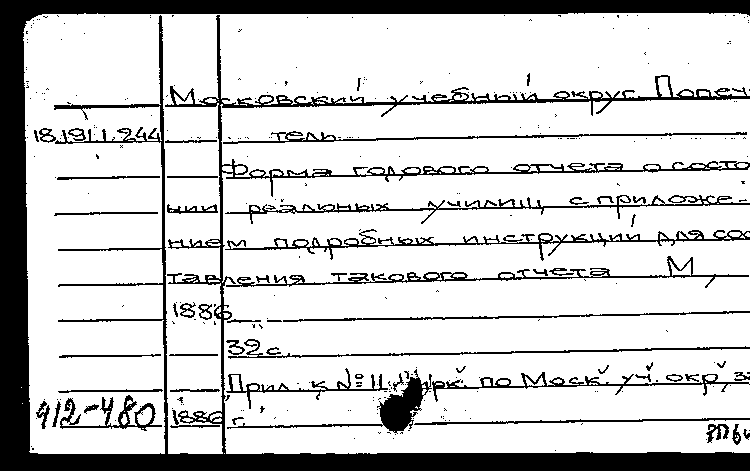 Московский учебный округ. Попеч
18.191.1.244 тель.
Форма годового отчета о состо
нии реальных училищ, с приложе-
нием подробных инструкций для сос
тавления такового отчета М.,
1886
32 с.
Прил. к № 11 Цирк. по Моск. уч. окр., за
412-480 1886 г.